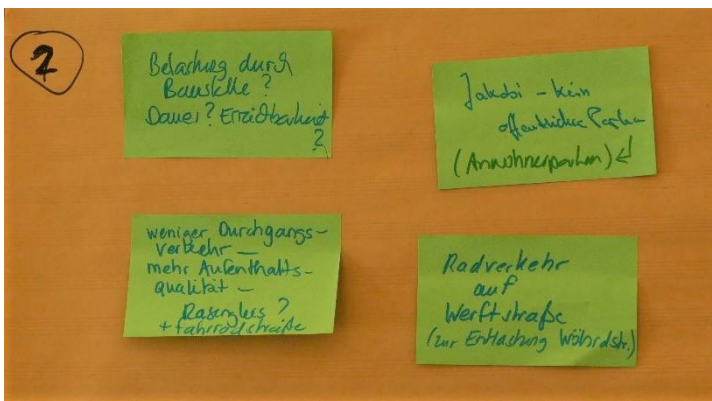 2
Belastung durch
Baustelle?
Dauer? Erreichbarkeit
?
Jakobi - kein
öffentliches Parken
(Anwohnerparken)
weniger Durchgangs-
verkehr -
mehr Aufenthalts-
qualität -
Rasengleis?
+ Fahrradstraße
Radverkehr
auf
Werftstraße
(zur Entlastung Wöhrdstr.)